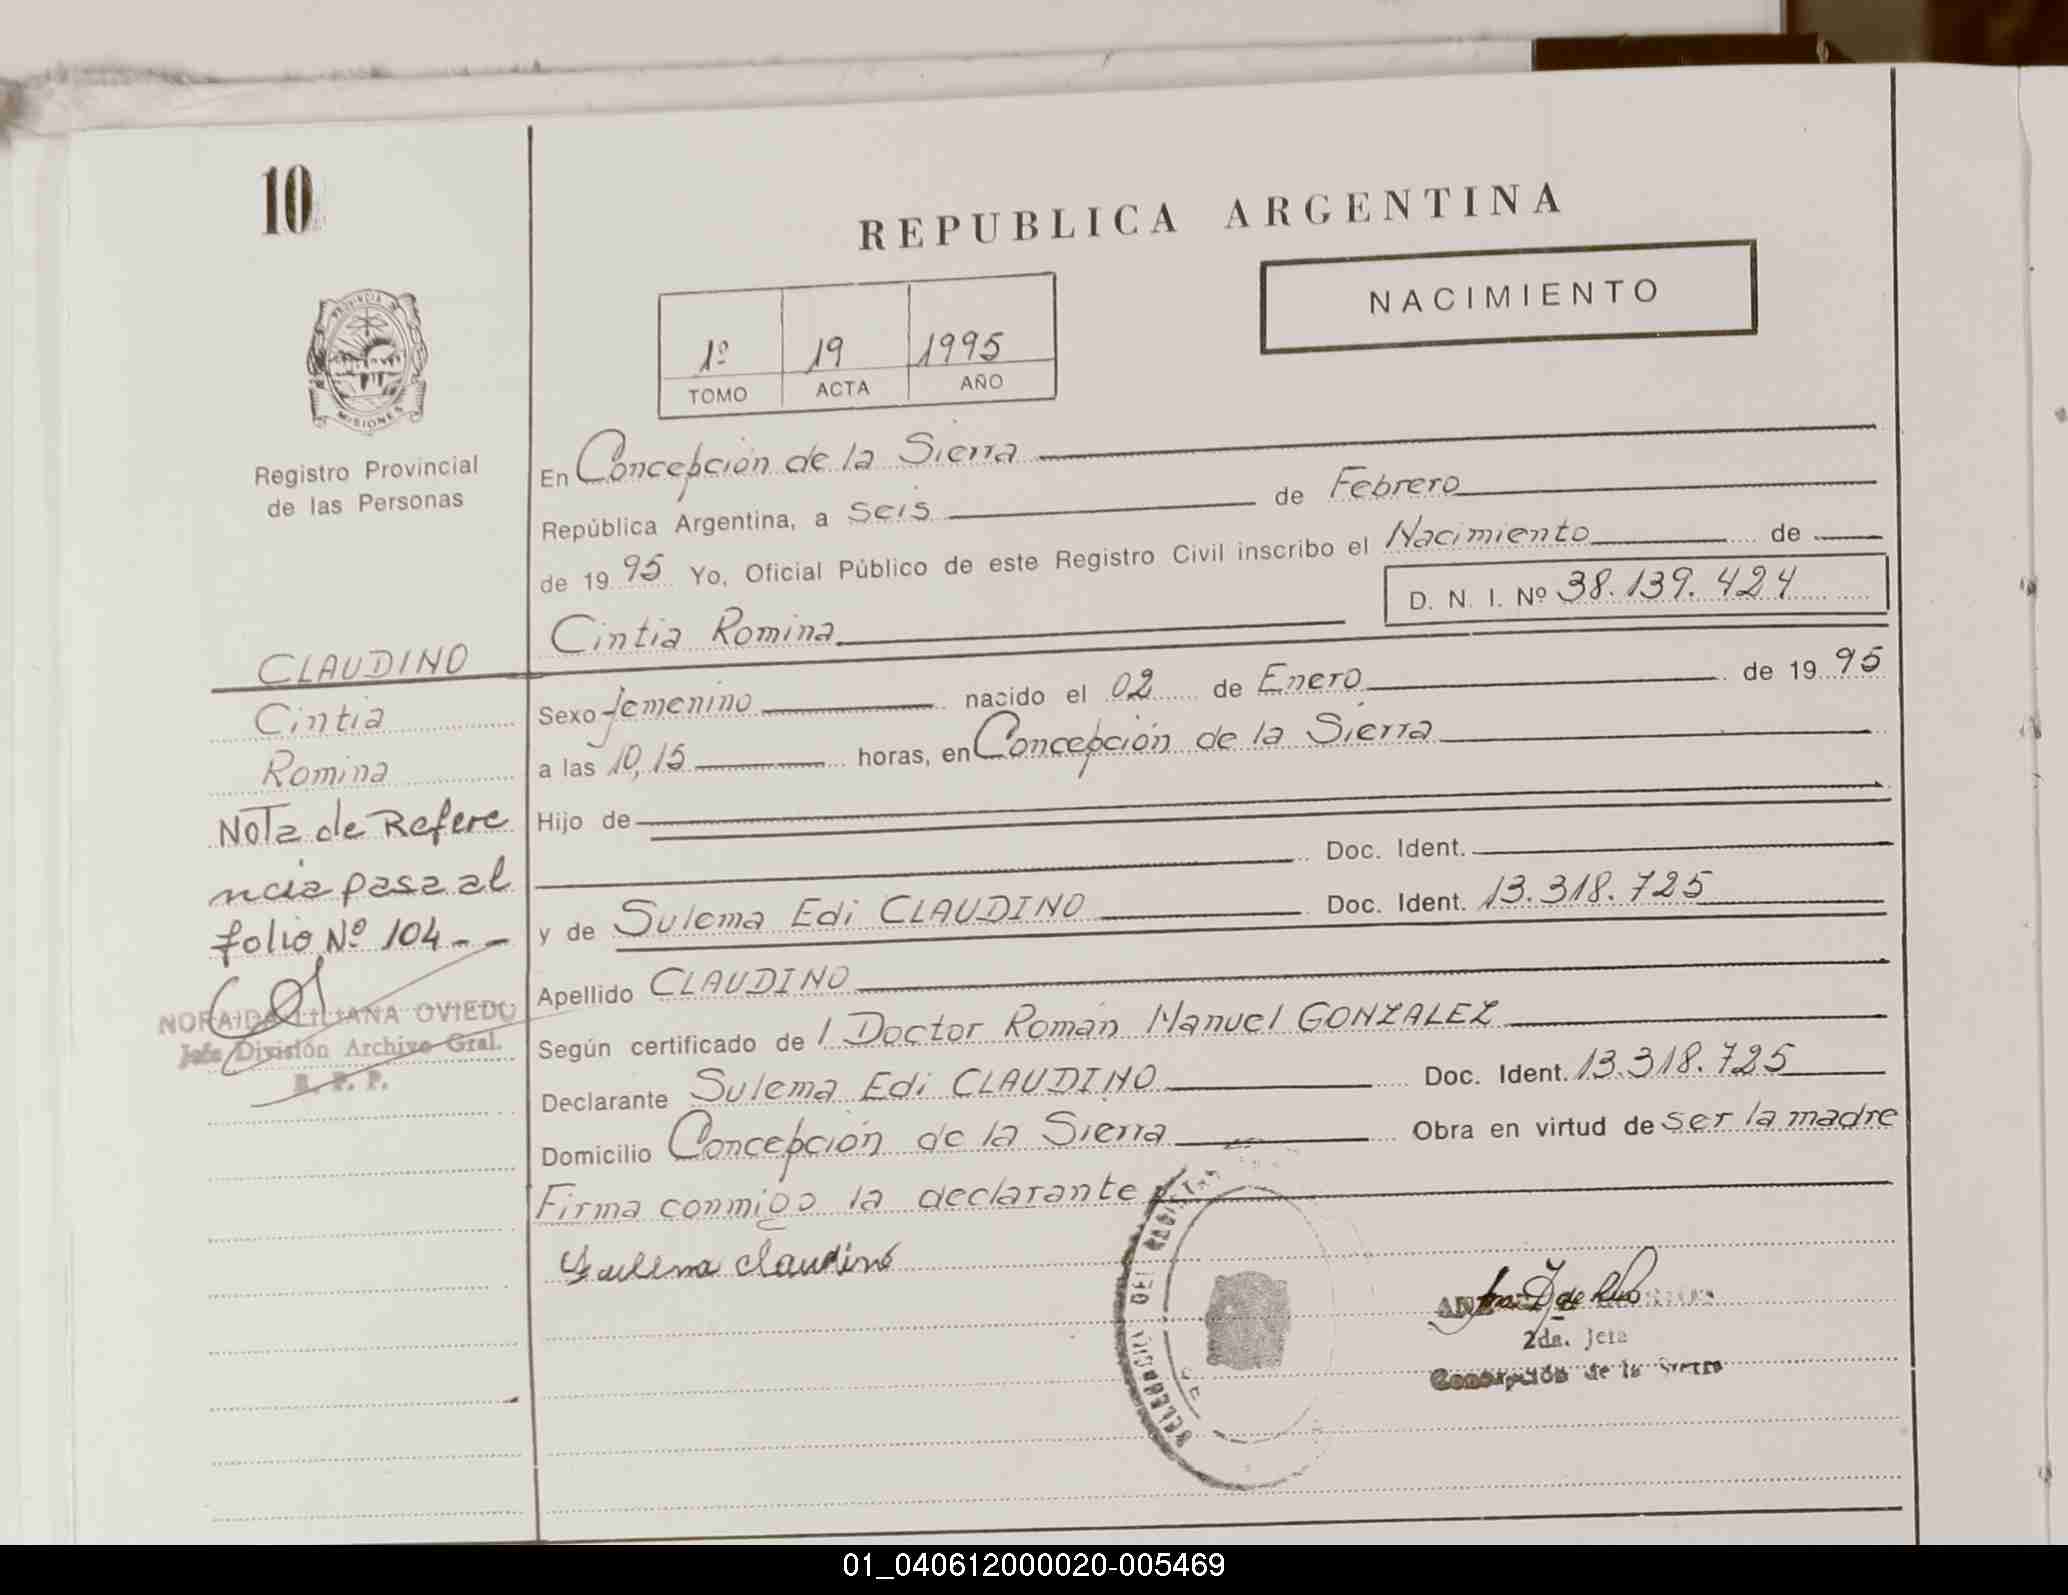 10
REPUBLICA ARGENTINA
NACIMIENTO
1º 19 1995
TOMO ACTA AÑO
PROVINCIA
MISIONES
Registro Provincial
de las Personas
En Concepción de la Sierra
República Argentina, a seis de Febrero
de 19 95 Yo, Oficial Público de este Registro Civil inscribo el Nacimiento de
D. N. I. Nº 38.139.424
Cintia Romina
CLAUDINO
Cintia
Romina
Nota de Refere
ncia pasa al
folio Nº 104 - -
NORAIDA LILIANA OVIEDO
Jefa División Archivo Gral.
R. P. P.
Sexo femenino nacido el 02 de Enero de 19 95
a las 10,15 horas, en Concepción de la Sierra
Hijo de
Doc. Ident.
y de Sulema Edi CLAUDINO Doc. Ident. 13.318.725
Apellido CLAUDINO
Según certificado de l Doctor Román Manuel GONZALEZ
Declarante Sulema Edi CLAUDINO Doc. Ident. 13.318.725
Domicilio Concepción de la Sierra Obra en virtud de ser la madre
Firma conmigo la declarante
Sulema Claudino
DELEGACION DEL REGISTRO
2da. Jefa
Concepción de la Sierra
01_040612000020-005469